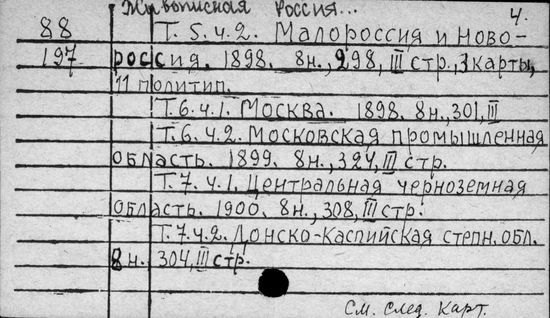 Живописная Россия... 4.
88 Т. 5. ч. 2. Малороссия и Ново-
197 россия. 1898. 8н., 298, III стр., 3 карты,
11 политип.
Т. 6. ч. 1. Москва. 1898. 8н., 301, II
Т. 6. ч. 2. Московская промышленная
область. 1899. 8н., 324, II стр.
Т. 7. ч. 1. Центральная черноземная
область. 1900. 8н., 308, III стр.
Т. 7. ч. 2. Донско-Каспийская степн. обл.
8н., 304, III стр.
См. след. карт.